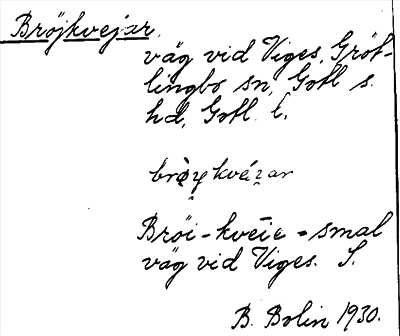 Bröjkvejar.
väg vid Viges, Gröt-
lingbo sn, Gotl s.
hd, Gotl. l.
brøy kvéi̯ar
Bröi-kveie = smal
väg vid Viges. S.
B. Bolin 1930.